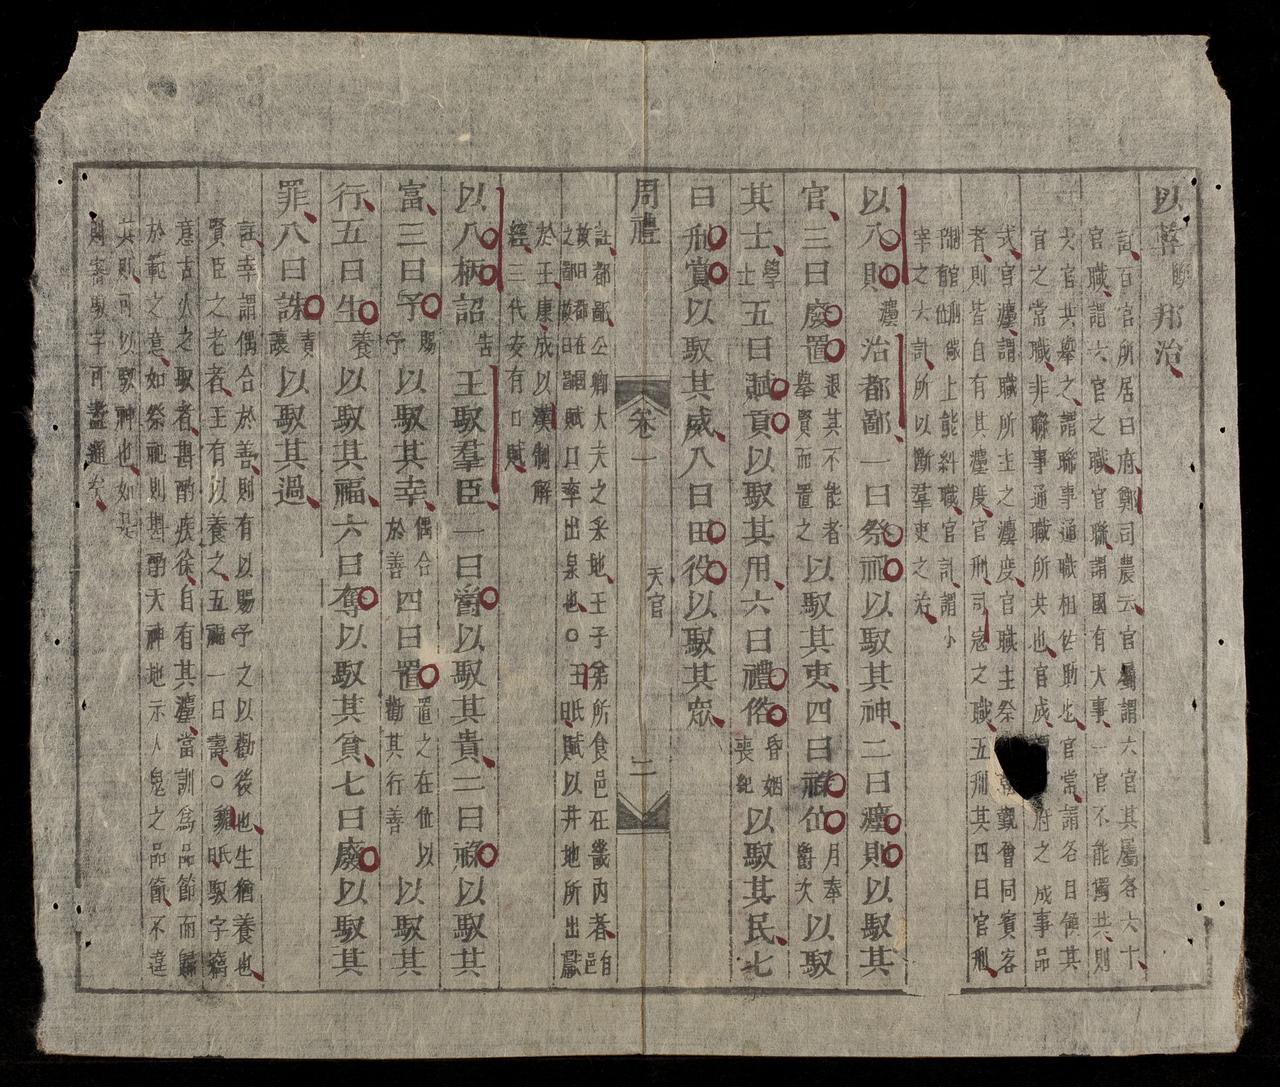 以䇹斷邦治
註百官所居曰府鄭司農云官屬謂六官其屬各六十
官職謂六官之職官聯謂國有大事一官不能獨共則
六官共舉之謂聯事通職相佐助也官常謂各自領其
官之常職非聯事通職所共也官成謂官府之成事品
式官灋謂職所主之灋度官職主祭朝覲會同賓客
者則皆自有其灋度官刑司寇之職五刑其四曰官刑
上能糾職官計謂小
宰之六計所以斷羣吏之治
以八則灋治都鄙一曰祭祀以馭其神二曰灋則以馭其
官三曰廢置退其不能者舉賢而置之以馭其吏四曰祿位月奉爵次以馭
其士學士五曰賦貢以馭其用六曰禮俗昏姻喪紀以馭其民七
曰刑賞以馭其威八曰田役以馭其眾
周禮 卷一 天官 二
註都鄙公卿大夫之采地王子弟所食邑在畿內者自邑
故曰都在國
之鄙故曰鄙賦口率出泉也○王氏賦以井地所出獻
於王康成以漢制解
經三代安有口賦
以八柄詔告王馭羣臣一曰爵以馭其貴二曰祿以馭其
富三曰予賜予以馭其幸偶合於善四曰置置之在位以勸其行善以馭其
行五曰生養以馭其福六曰奪以馭其貧七曰廢以馭其
罪八曰誅責讓以馭其過
註幸謂偶合於善則有以賜予之以勸後也生猶養也
賢臣之老者王有以養之五福一曰壽○魏氏馭字猶
意古人之馭者斟酌疾徐自有其灋當訓爲品節而
於範之意如祭祀則斟酌天神地示人鬼之品節不違
其則可以馭神也如是
則審馭字可盡通矣